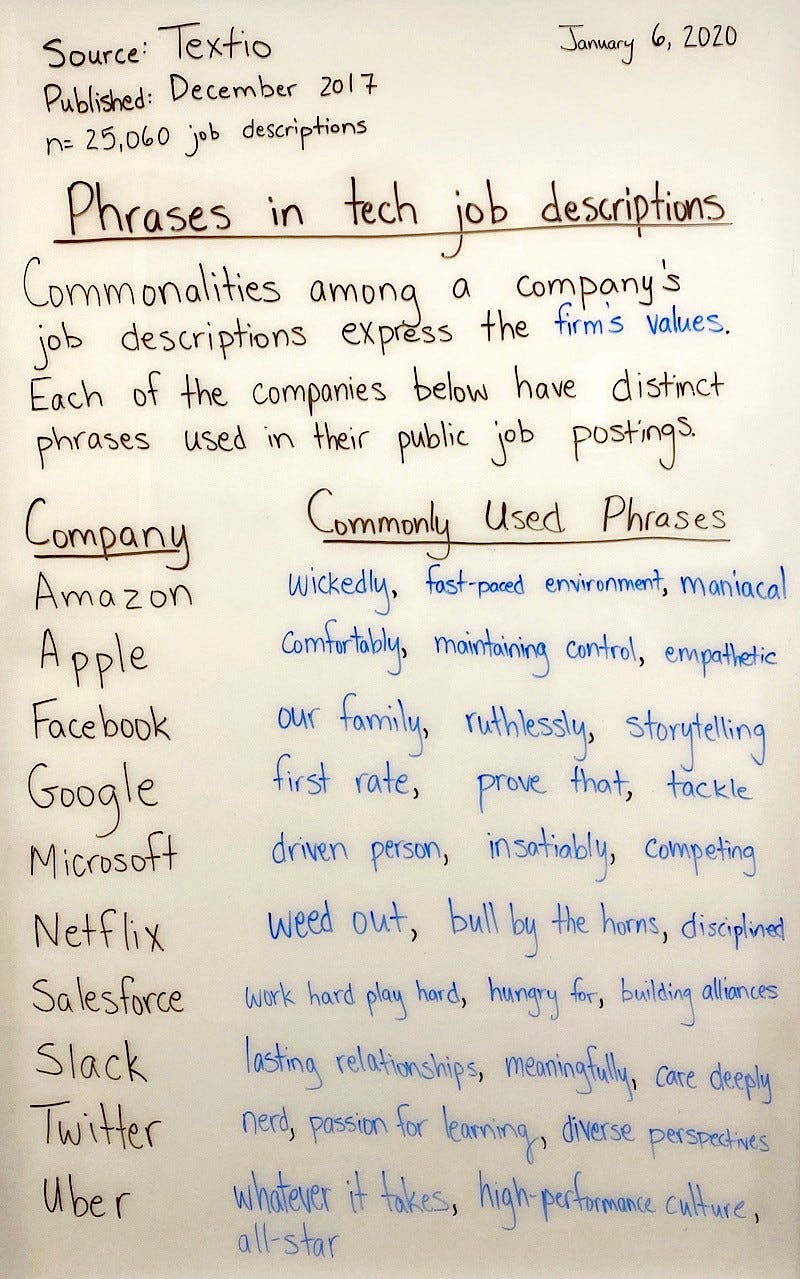 Source: Textio
January 6, 2020
Published: December 2017
n= 25,060 job descriptions
Phrases in tech job descriptions
Commonalities among a company's
job descriptions express the firm's values.
Each of the companies below have distinct
phrases used in their public job postings.
Company Commonly Used Phrases
Amazon wickedly, fast-paced environment, maniacal
Apple comfortably, maintaining control, empathetic
Facebook our family, ruthlessly, storytelling
Google first rate, prove that, tackle
Microsoft driven person, insatiably, competing
Netflix weed out, bull by the horns, disciplined
Salesforce work hard play hard, hungry for, building alliances
Slack lasting relationships, meaningfully, care deeply
Twitter nerd, passion for learning, diverse perspectives
Uber whatever it takes, high-performance culture,
all-star